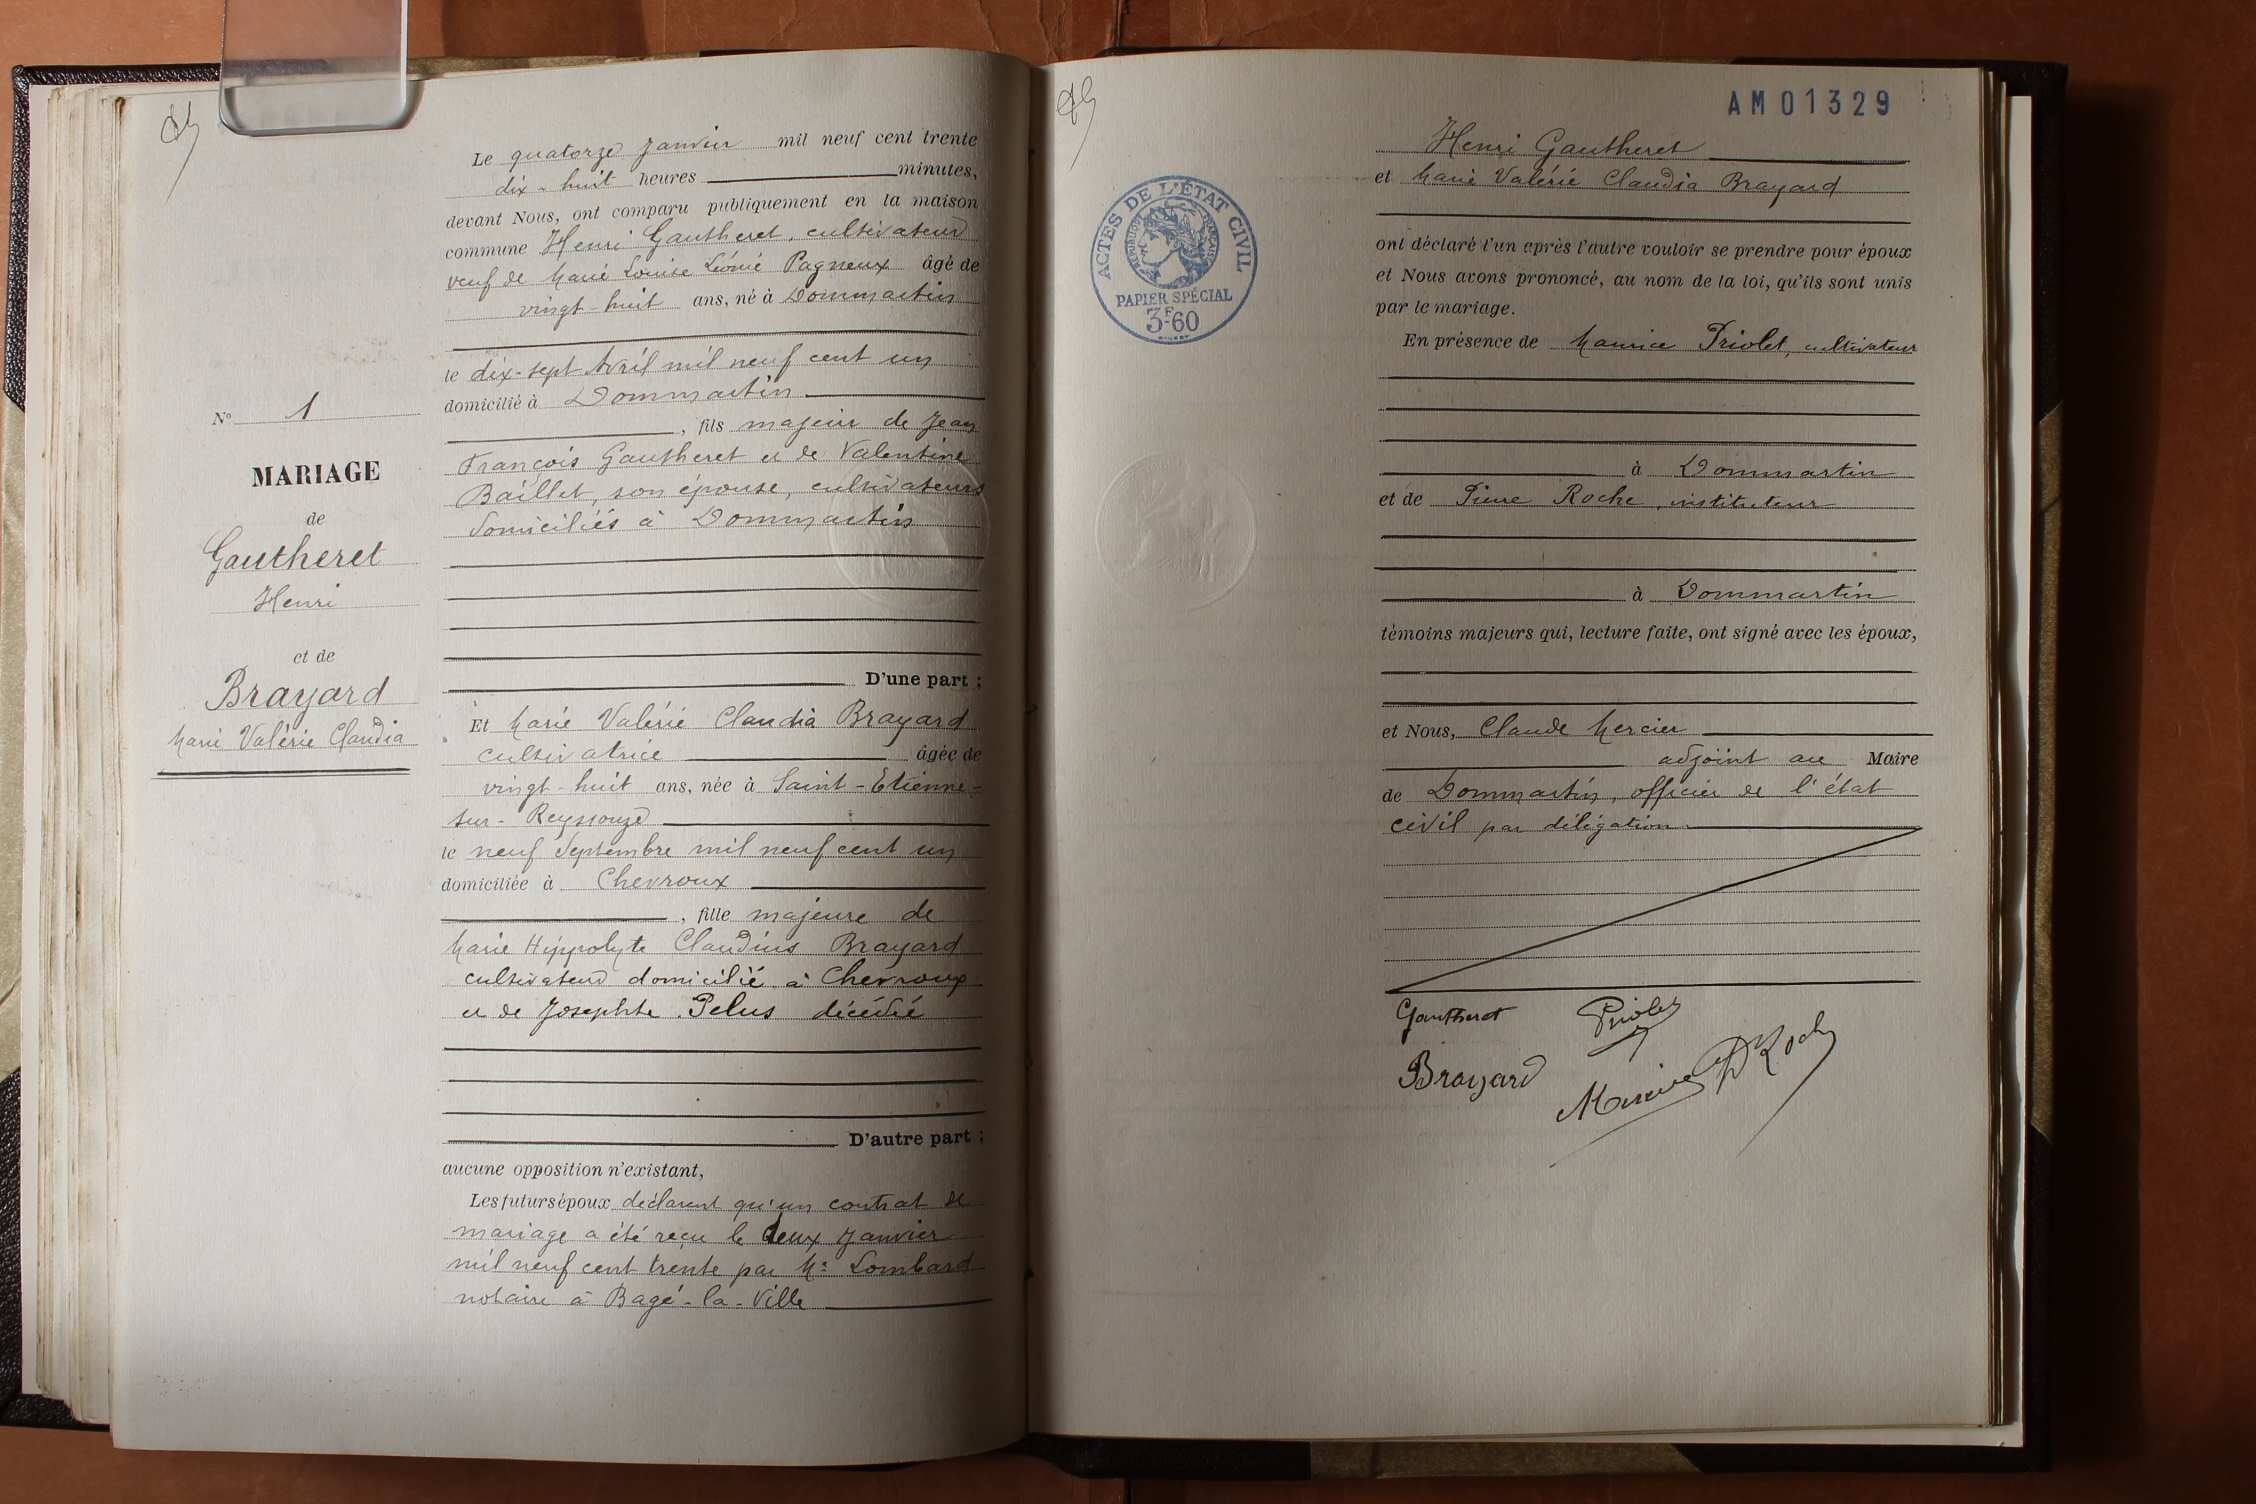 Le quatorze janvier mil neuf cent trente
dix-huit heures minutes,
devant Nous, ont comparu publiquement en la maison
commune Henri Gautheret, cultivateur
veuf de Marie Louise Léonie Pagneux âgé de
vingt-huit ans, né à Dommartin
le dix-sept Avril mil neuf cent un
domicilié à Dommartin
, fils majeur de Jean
François Gautheret et de Valentine
Baillet, son épouse, cultivateurs
domiciliés à Dommartin
D'une part ;
Et Marie Valérie Claudia Brayard
cultivatrice âgée de
vingt-huit ans, née à Saint-Etienne-
sur-Reyssouze
le neuf Septembre mil neuf cent un
domiciliée à Chevroux
, fille majeure de
Marie Hippolyte Claudius Brayard
cultivateur domicilié à Chevroux
et de Josephte Pelus décédée
D'autre part ;
aucune opposition n'existant,
Les futurs époux déclarent qu'un contrat de
mariage a été reçu le deux Janvier
mil neuf cent trente par Me Lombard
notaire à Bagé-la-Ville
N° 1
MARIAGE
de
Gautheret
Henri
et de
Brayard
Marie Valérie Claudia
AM01329
ACTES DE L'ÉTAT CIVIL
RÉPUBLIQUE FRANÇAISE
PAPIER SPÉCIAL
3F60
Henri Gautheret
et Marie Valérie Claudia Brayard
ont déclaré l'un après l'autre vouloir se prendre pour époux
et Nous avons prononcé, au nom de la loi, qu'ils sont unis
par le mariage.
En présence de Maurice Priolet, cultivateur
à Dommartin
et de Pierre Roche, instituteur
à Dommartin
témoins majeurs qui, lecture faite, ont signé avec les époux,
et Nous, Claude Mercier
adjoint au Maire
de Dommartin, officier de l'état
civil par délégation
Gautheret Priolet
Brayard Mercier P Roche